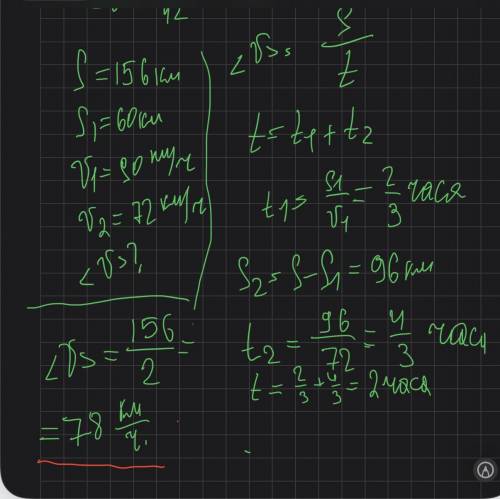 S = 156 км
S₁ = 60 км
v₁ = 90 км/ч
v₂ = 72 км/ч
<v>?
<v> = S/t
t = t₁ + t₂
t₁ = S₁/v₁ = 2/3 часа
S₂ = S - S₁ = 96 км
t₂ = 96/72 = 4/3 часа
t = 2/3 + 4/3 = 2 часа
<v> = 156/2 =
= 78 км/ч.